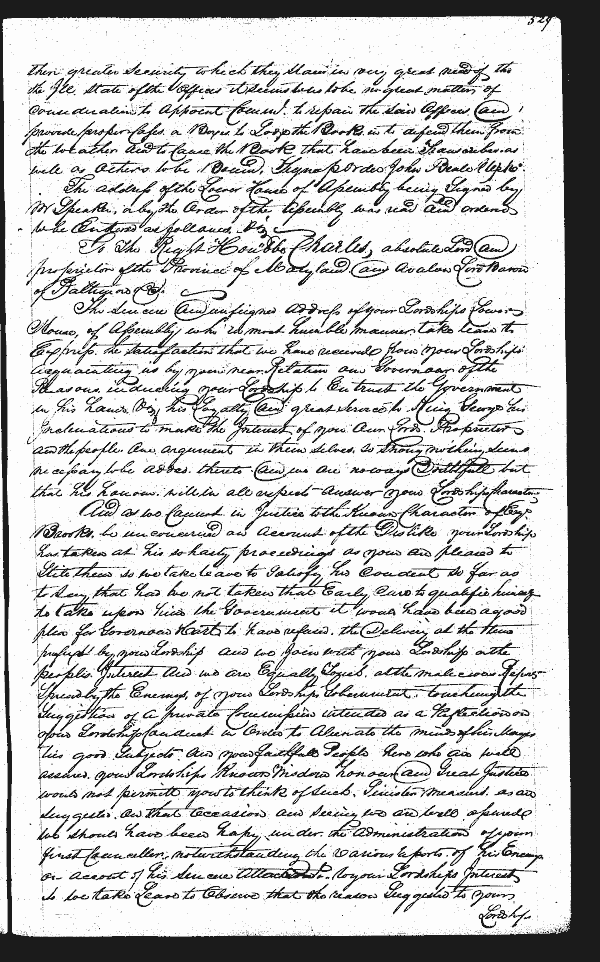 529
their greater Security which they stand in very great need of the
the Ill State of the Offices it seems to us to be no great matter of
Consideration to Appoint Comm.rs to repair the said Offices and
provide proper Cases or Boxes to Lodge the Books in to defend them from
the weather and to Cause the Book that have been Transcribed as
well as others to be Bound. Signed p Order John Beale Cl.
The address of the Lower House of Assembly being Signed by
Mr Speaker, by the Order of the Assembly was read and ordered
to be Entered as follows. Viz
To The Right Hon.ble Charles, absolute Lord and
proprietor of the Province of Maryland and Avalon Lord Baron
of Baltimore &c.
The sincere and unfeigned Address of your Lordships Lower
House, of Assembly who in most humble manner take leave to
Express the satisfaction that we have received from your Lordships
acquainting us by your near Relation our Governour of the
Reasons, inducing your Lordship to Entrust the Government
in his hands Viz his Loyalty and great Service to King George his
Inclinations to make the Interest of you Our Lord Proprietor
and the people One, argument in themselves, so Strong nothing seems
necessary to be added thereto and we are no ways Doubtfull but
that his honour will in all respects Answer your Lordships Character
And as we Cannot in Justice to the Known Character of
Brooke, be unconcerned on Account of the Dislike your Lordship
has taken at his so hasty proceedings as you are pleased to
Stile them so we take leave to Satisfy his Conduct so far as
to say, that had he not taken that Early Care to qualifie himself
to take upon him the Government it would have been a good
plea for Governour Hart to have refused the Delivery at the time
prefixt by your Lordship and we join with your Lordship in the
peoples Interest and we are Equally at the malicious Reports
Spread by the Enemys, of your Lordships Government, touching the
Suggestion of a private Commission intended as a Reflection on
your Lordships Conduct in Order to Alienate the minds of his Majestys
good Subjects and your faithfull People here who are well
assured your Lordships Known Wisdom honour and Great Justice
would not permit you to think of Such Sinister measures as are
Suggested on that Occasion and seeing we are well assured
we should have been happy, under the Administration of your
first Councellor, notwithstanding the various Reports of his Enemys
on account of his sincere Attachment to your Lordships Interest
so we take Leave to Observe that the reason Suggested to your
Lordship